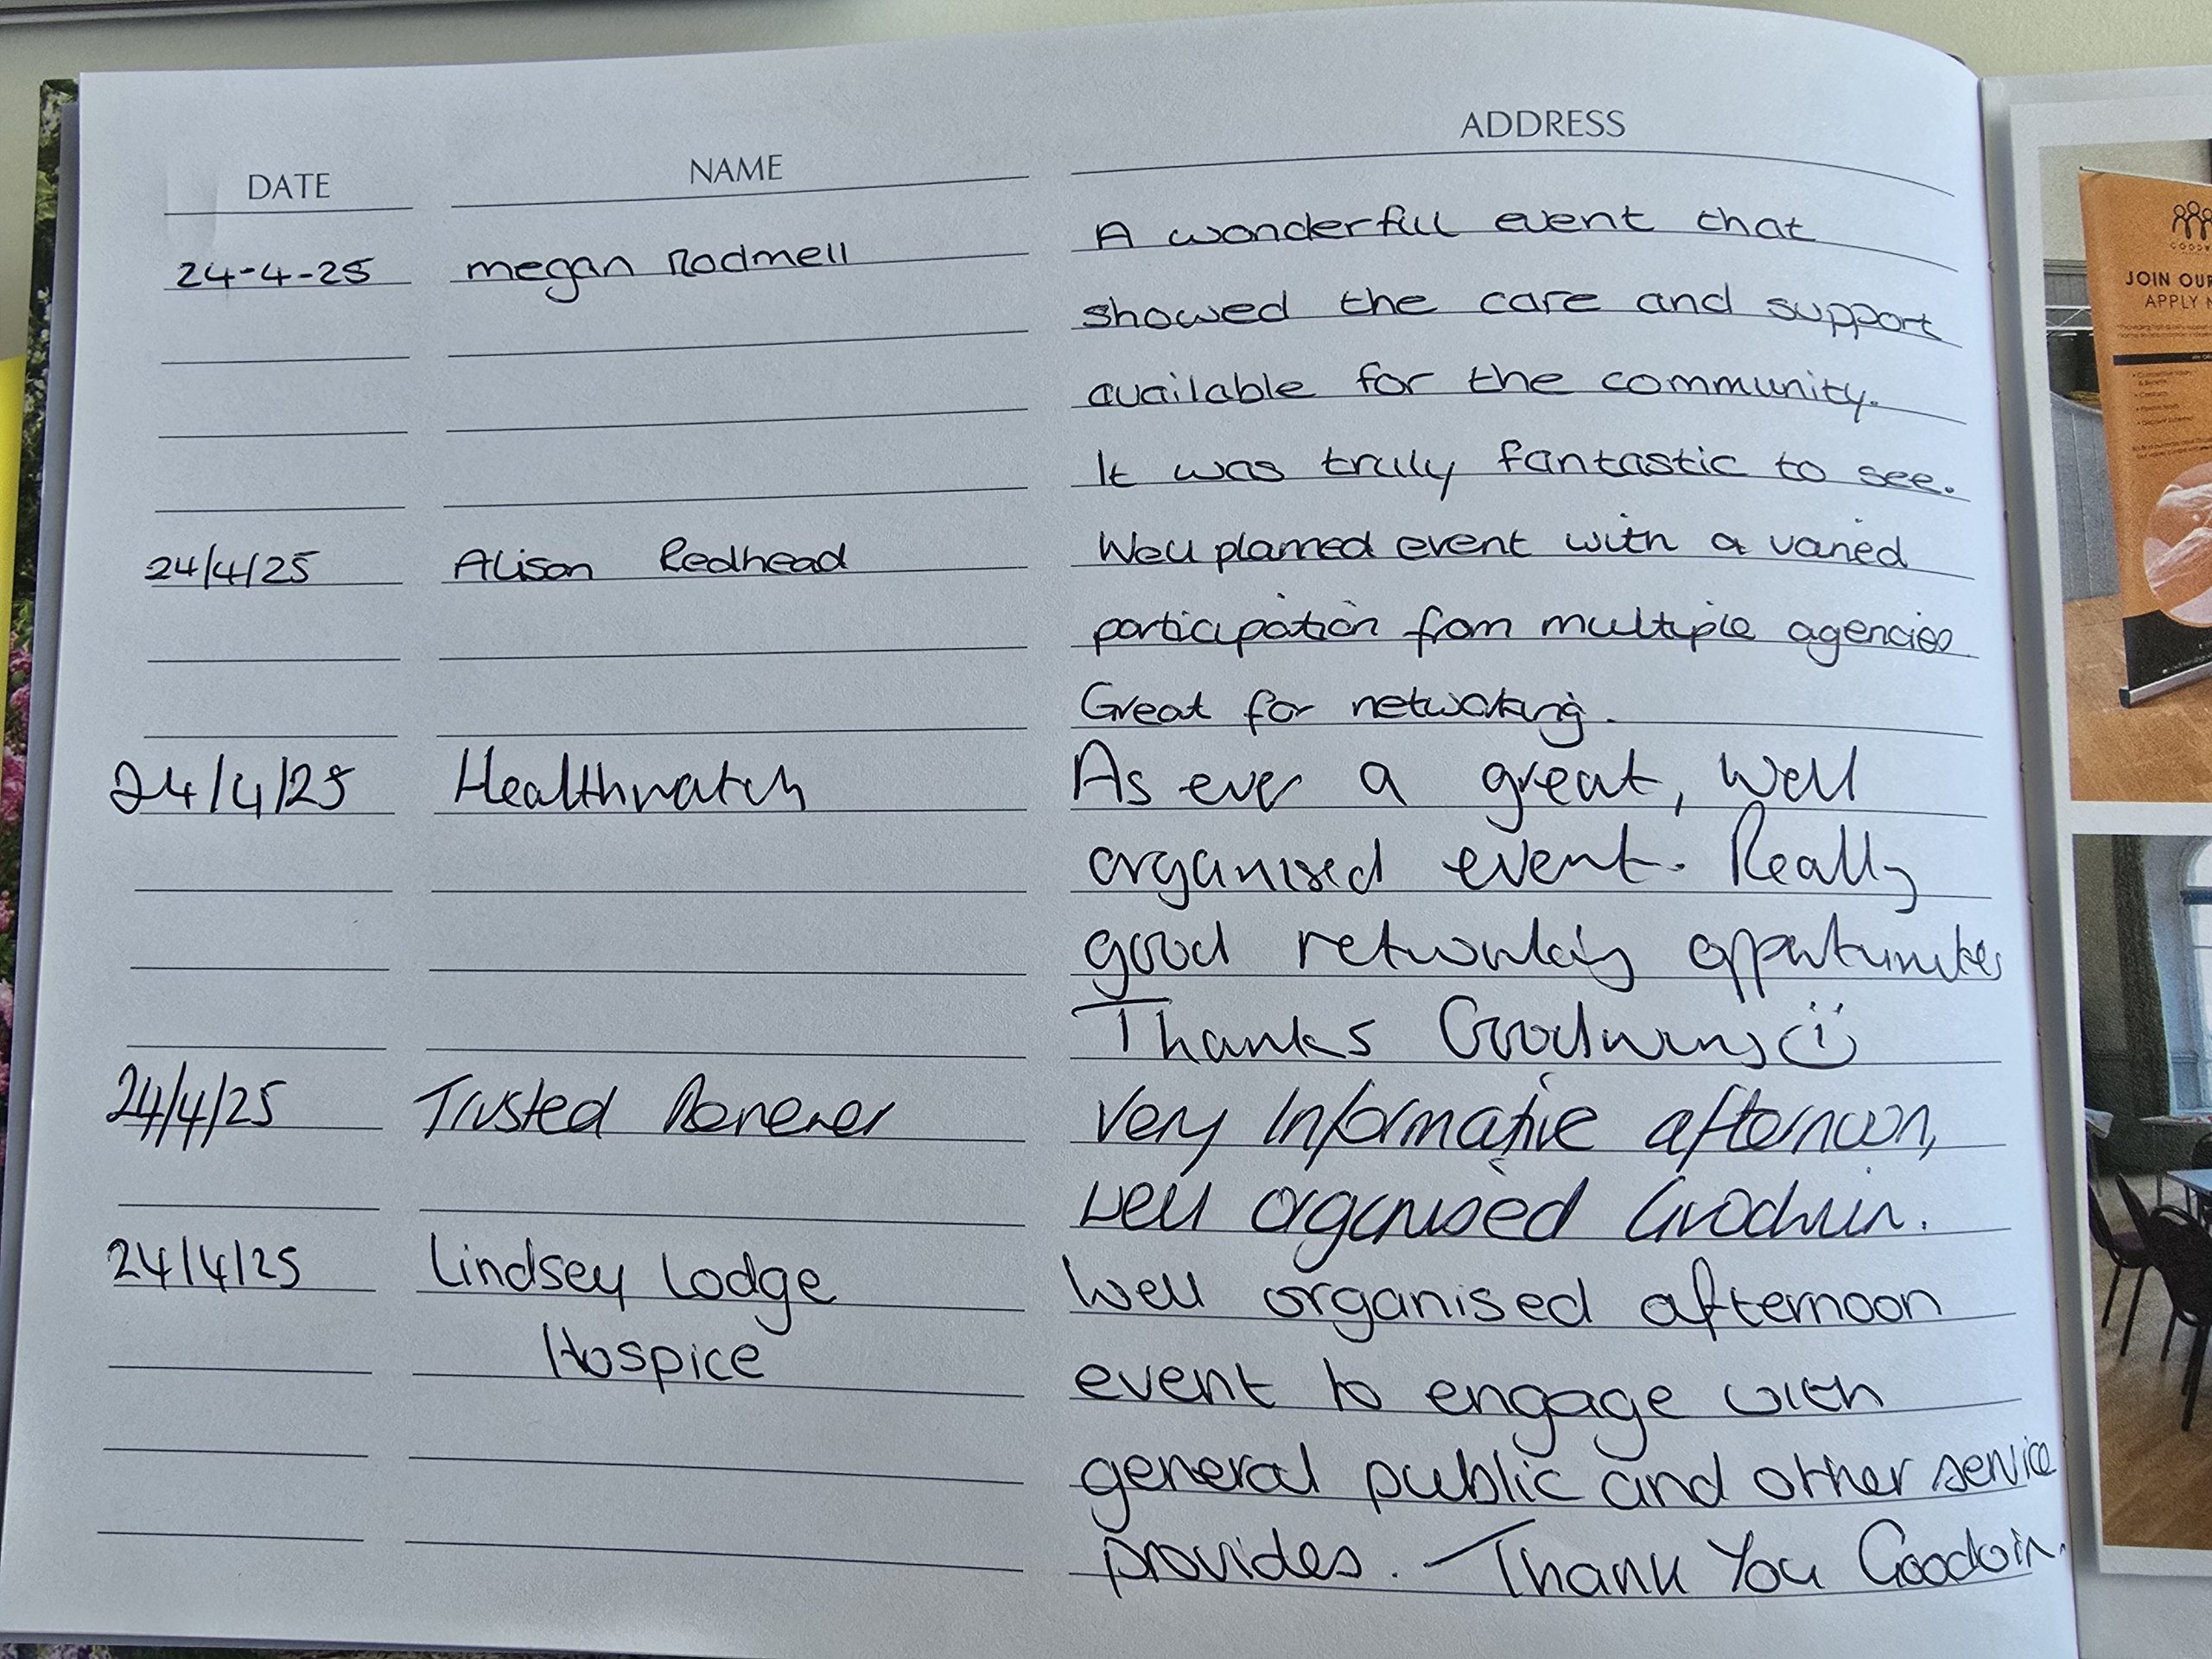 DATE NAME ADDRESS
24-4-25 megan Rodmell A wonderful event that
showed the care and support
available for the community.
It was truly fantastic to see.
24/4/25 Alison Redhead Well planned event with a varied
participation from multiple agencies
Great for networking.
24/4/25 Healthwatch As ever a great, well
organised event. Really
good networking opportunites
Thanks Goodwins
24/4/25 Trusted Very Informative afternoon,
well organised Goodwin.
24/4/25 Lindsey Lodge Well organised afternoon
Hospice event to engage with
general public and other service
provides. Thank You Goodwin.
JOIN OUR
APPLY